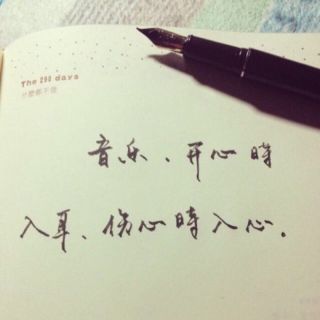 The 290 days
音乐、开心時
入耳、伤心時入心。